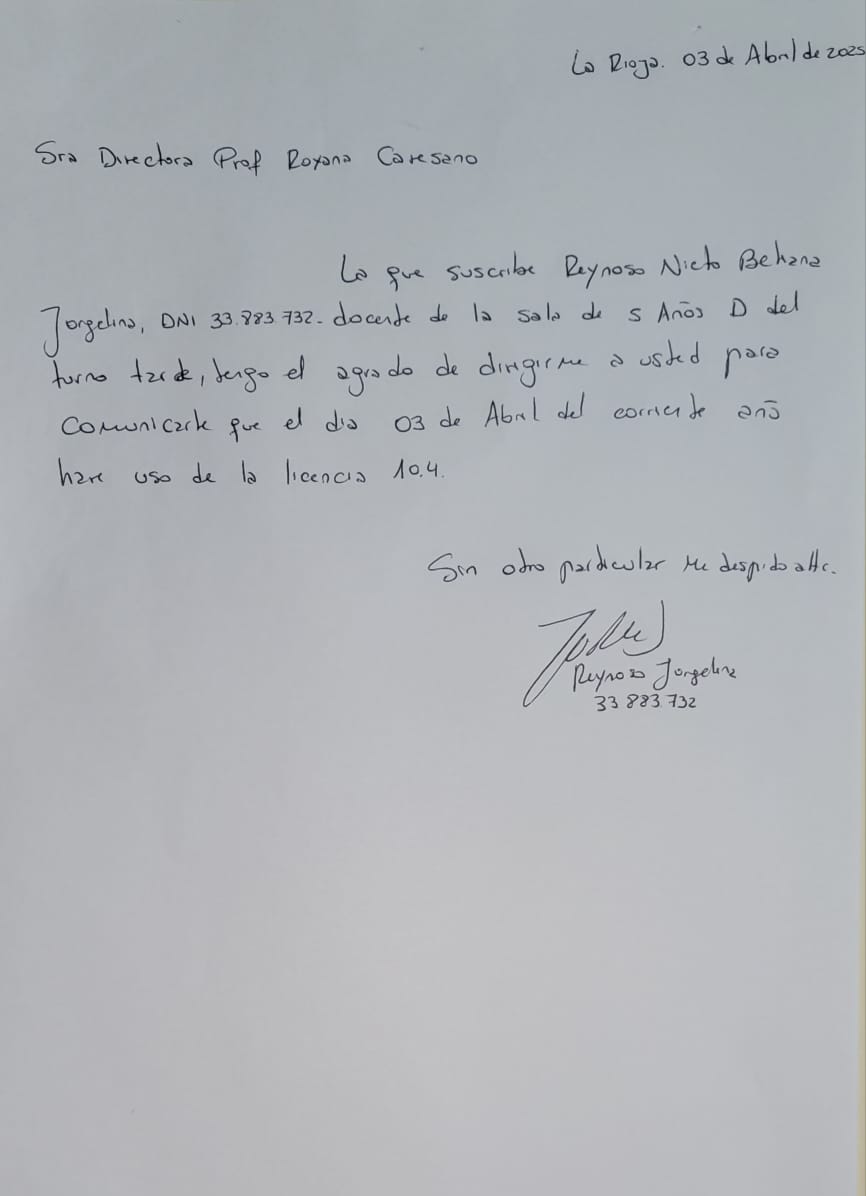 La Rioja. 03 de Abril de 2025
Sra Directora Prof Roxana Caresano
La que suscribe Reynoso Nieto Betiana
Jorgelina, DNI 33.883.732- docente de la sala de 5 Años D del
turno tarde, tengo el agrado de dirigirme a usted para
comunicarle que el dia 03 de Abril del corriente año
hare uso de la licencia 10.4.
Sin otro particular me despido atte.
Reynoso Jorgelina
33 883.732